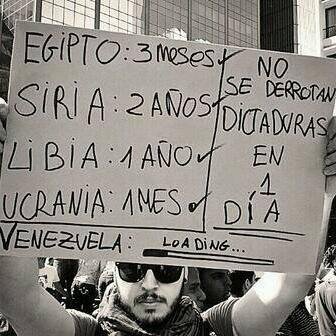 EGIPTO: 3 MESES
SIRIA: 2 AÑOS
LIBIA: 1 AÑO
UCRANIA: 1 MES
VENEZUELA: LOADING...
NO
SE DERROTAN
DICTADURAS
EN
1
DÍA